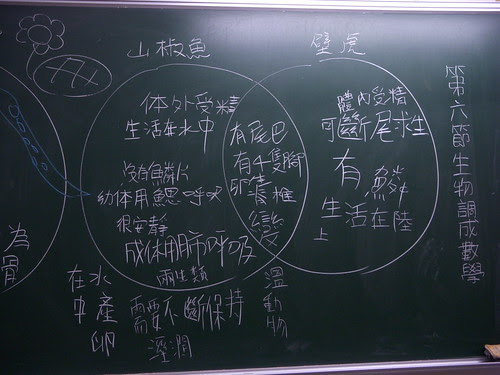 山椒魚
壁虎
體外受精
生活在水中
沒有鱗片
幼体用鰓呼吸
很安靜
成体用肺呼吸
兩生類
有尾巴
有4隻腳
卵生
脊椎
變
溫
動
物
體內受精
可斷尾求生
有鱗
生活在陸
上
第六節生物調成數學
在水
中產
卵
需要不斷保持
溼潤
為
骨